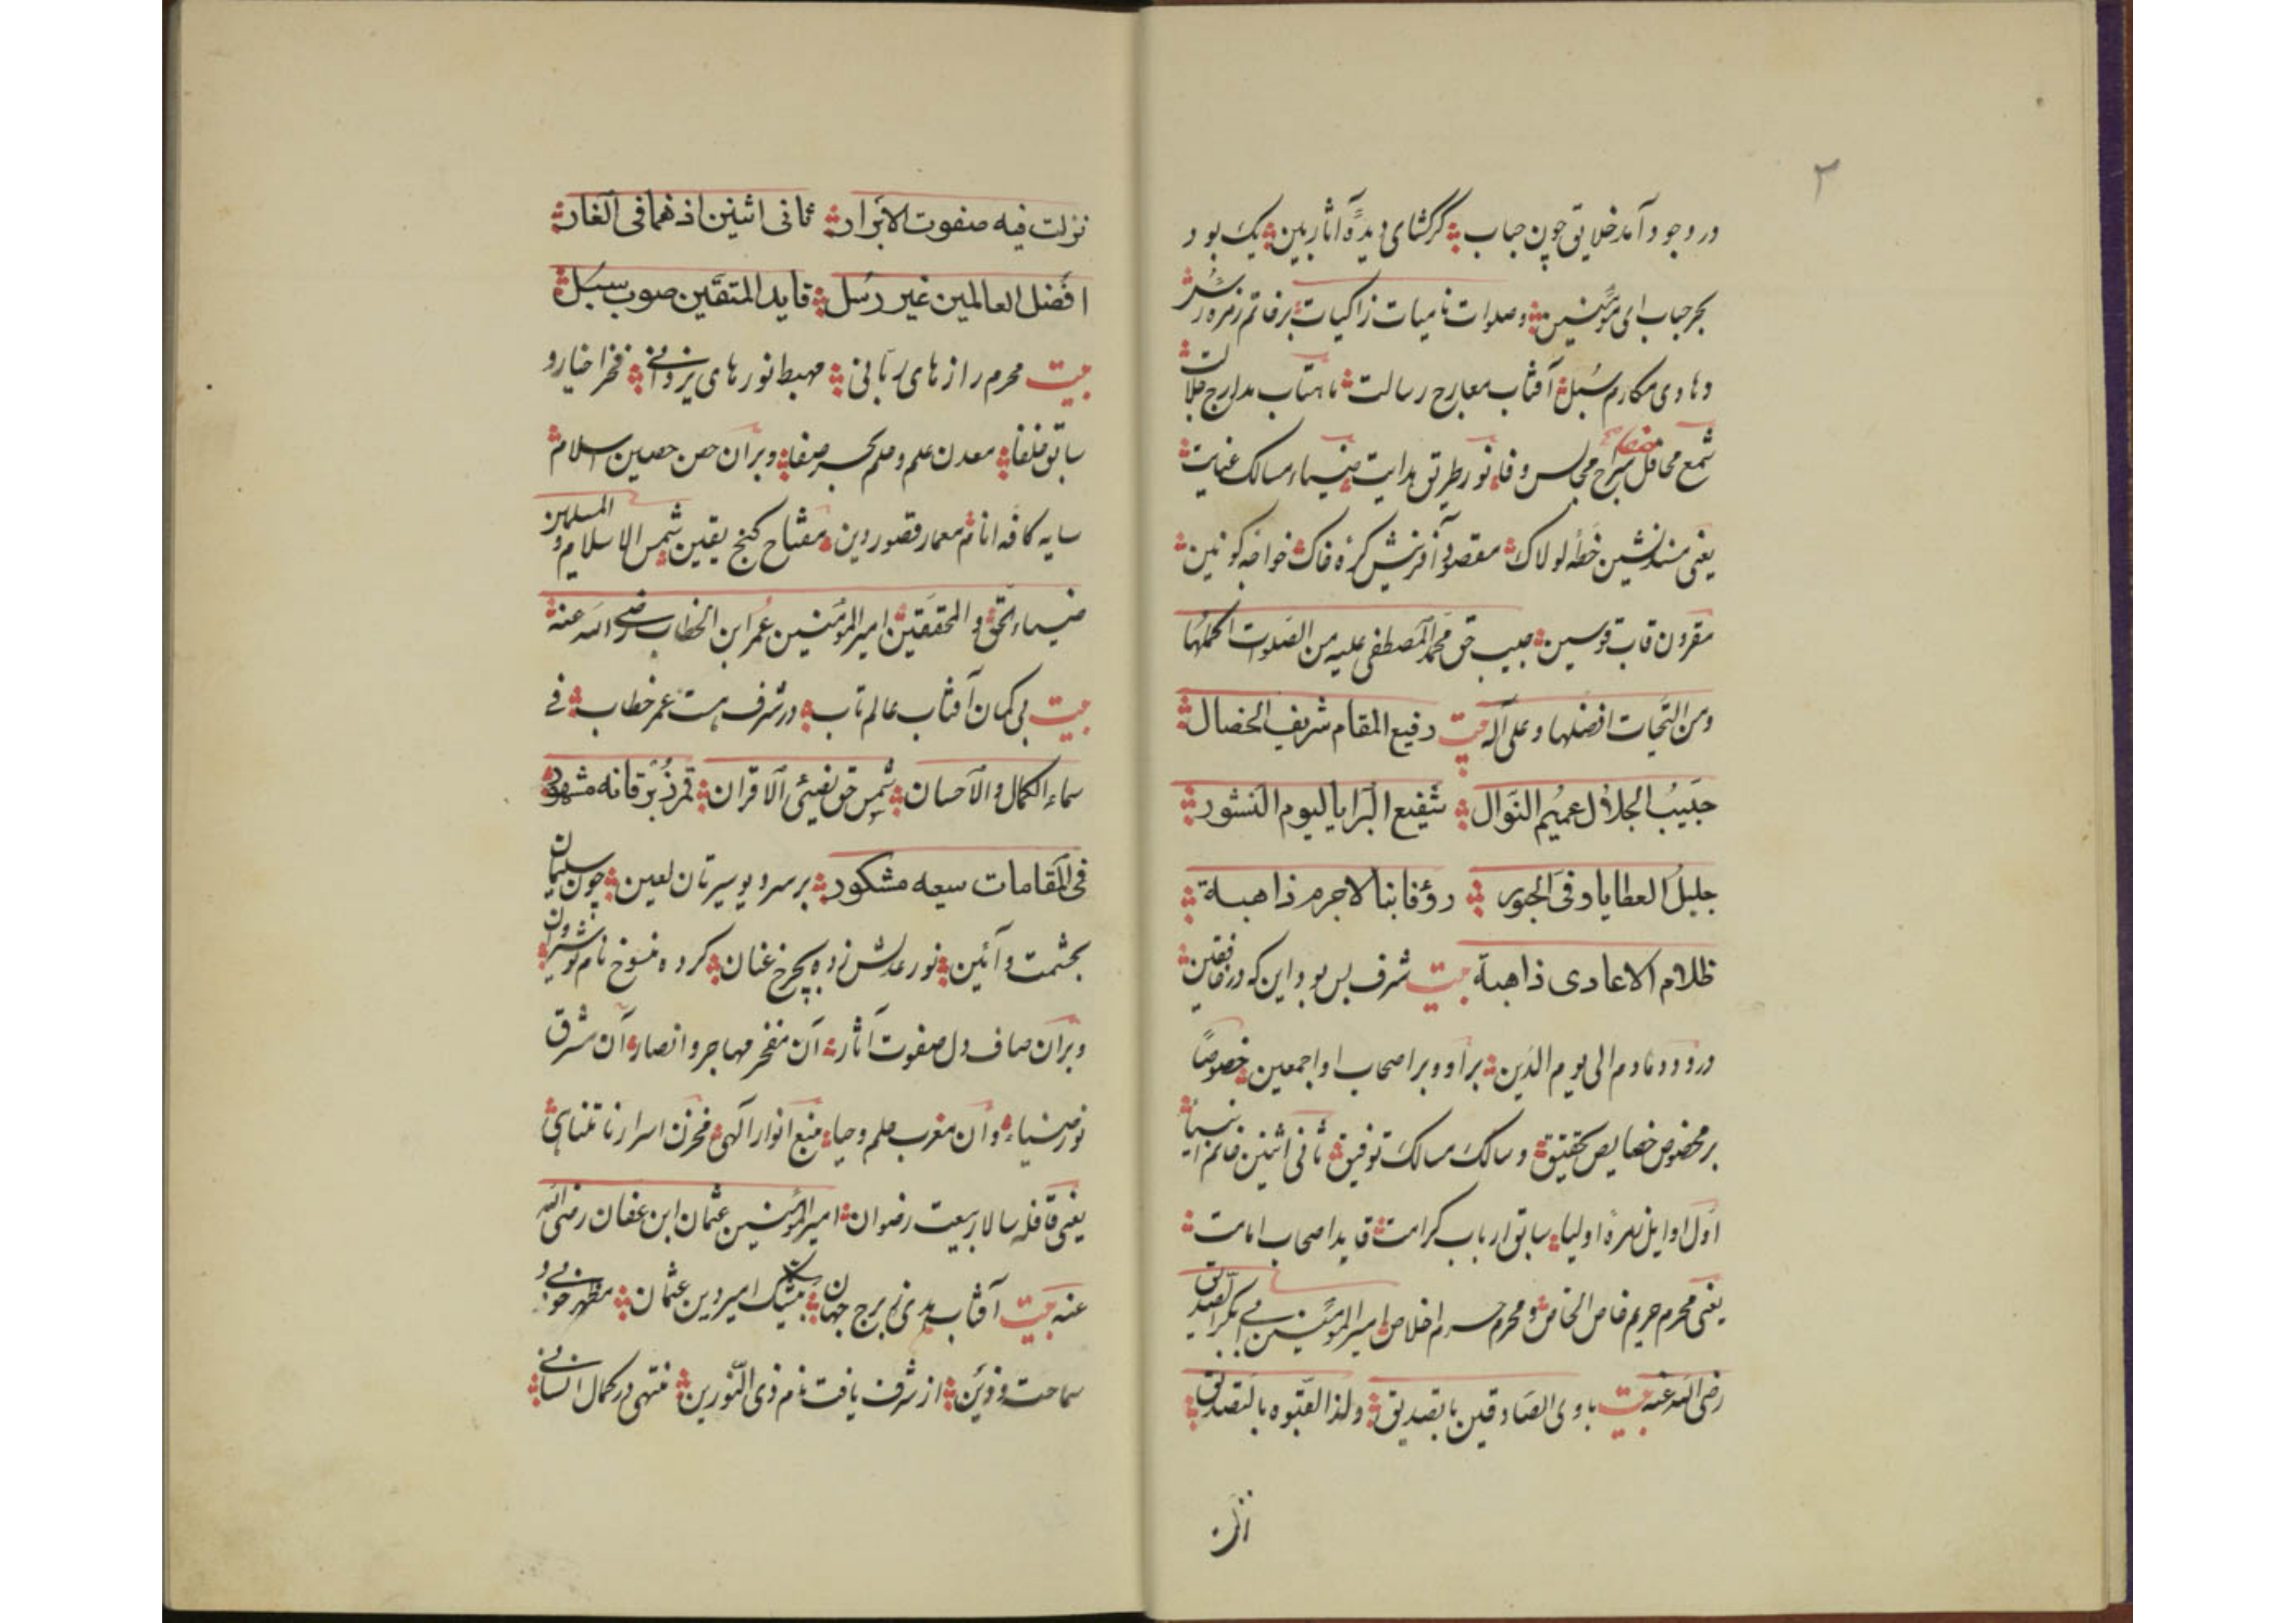 ۲
در وجود آمد خلایق چون حباب کر کشای دیدهٔ آثار بین یک بود
بحر حباب ای مؤمنین وصلوات نامیات زاکیات بر خاتم زمرهٔ رسل
وهادی مکارم سبل آفتاب معارج رسالت ماهتاب مدارج جلالت
شمع محافل صفا سراج مجالس وفا نور طریق هدایت ضیاء مسالک عنایت
یعنی مسند نشین خطه لولاک مقصود آفرینش کرهٔ خاک خواجه کونین
مقرون قاب قوسین حبیب حق محمد المصطفی علیه من الصلوات اکملها
ومن التحیات افضلها وعلی آله بیت رفیع المقام شریف الخصال
حبیب الجلال عمیم النوال شفیع البرایا لیوم النشور
جلیل العطایا وفی الجبور رؤفا بنا لاجرم ذاهبة
ظلام الاعادی ذاهبة بیت شرف بس بود این که در خافقین
درود دمادم الی یوم الدین بر او و بر اصحاب او اجمعین خصوصاً
بر مخصوص خصایص تحقیق وسالک مسالک توفیق ثانی اثنین خاتم انبیا
اول اوایل زمرهٔ اولیا سابق ارباب کرامت قاید اصحاب امامت
یعنی محرم حریم خاص الخاص ومحرم حرم اخلاص امیر المؤمنین ابی بکر الصدیق
رضی الله عنه بیت هادی الصادقین بالتصدیق ولذا لقبوه بالتصدیق
نزلت فیه صفوت الابرار ثانی اثنین اذ هما فی الغار
افضل العالمین غیر رسل قاید المتقین صوب سبل
بیت محرم رازهای ربانی مهبط نورهای یزدانی فخر اخیار و
سابق خلفا معدن علم وحلم بحر صفا وبر آن حصن حصین اسلام
سایه کافه انام معمار قصور دین مفتاح کنج یقین شمس الاسلام و المسلمین
ضیاء الحق والمحققین امیر المؤمنین عمر ابن الخطاب رضی الله عنه
بیت بی کمان آفتاب عالم تاب در شرف هست عمر خطاب فی
سماء الکمال والاحسان شمس حق تضیئ الاقران مشهود
فی المقامات سعیه مشکور بر سر دیو سیرتان لعین چون سلیمان
بحشمت وآئین نور عدلش زده بچرخ عنان کرده منسوخ نام نوشیروان
وبر آن صاف دل صفوت آثار آن مفخر مهاجر وانصار آن شرق
نور ضیاء وآن مغرب حلم وحیا منبع انوار آلهی مخزن اسرار نامتناهی
یعنی قافله سالار بیعت رضوان امیر المؤمنین عثمان ابن عفان رضی الله
عنه بیت آفتاب هدی ز برج جهان بیشک امیر دین عثمان مظهر خوبی و
سماحت از شرف یافت نام ذی النورین منتهی در کمال انسانی